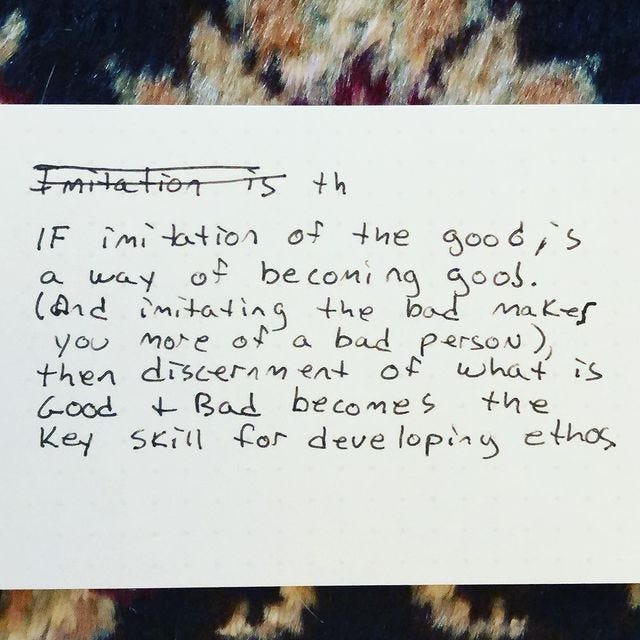 Imitation is th
IF imitation of the good, is
a way of becoming good.
(And imitating the bad makes
you more of a bad person),
then discernment of what is
Good + Bad becomes the
Key skill for developing ethos